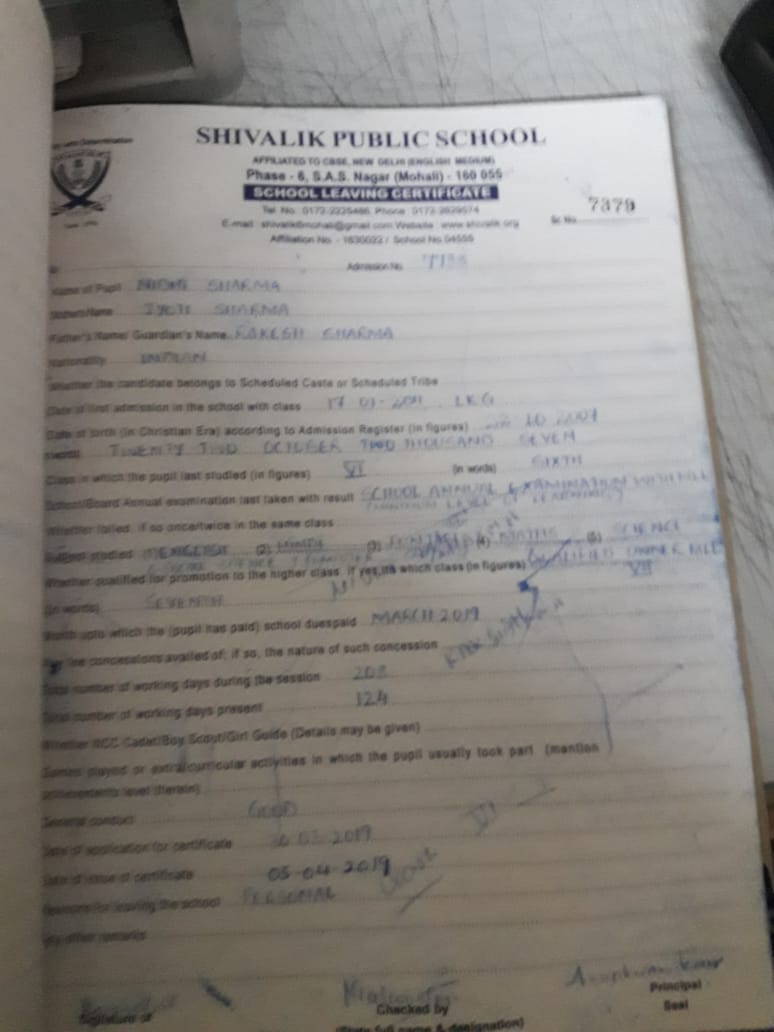 SHIVALIK PUBLIC SCHOOL
AFFILIATED TO CBSE, NEW DELHI (ENGLISH MEDIUM)
Phase - 6, S.A.S. Nagar (Mohali) - 160 055
SCHOOL LEAVING CERTIFICATE
Tel. No. 0172-2225468, Phone : 0172-
E-mail : shivalik6mohali@gmail.com Website : www.shivalik.org
Sr. No. 7379
Affiliation No. - 1630022 / School No.04555
Admission No.
Name of Pupil NIDHI SHARMA
Name JYOTI SHARMA
Father's Name/ Guardian's Name RAKESH SHARMA
Nationality INDIAN
Whether the candidate belongs to Scheduled Caste or Scheduled Tribe
Date of first admission in the school with class LKG
Date of birth (in Christian Era) according to Admission Register (in figures) 10 2007
TWENTY TWO OCTOBER TWO THOUSAND SEVEN
Class in which the pupil last studied (in figures) VI (in words) SIXTH
School/Board Annual examination last taken with result SCHOOL ANNUAL EXAMINATION WITH MLL
Whether failed, if so once/twice in the same class
Subject studied (1) ENGLISH (2) (3) (4) MATHS (5) SCIENCE
Whether qualified for promotion to the higher class. If yes, to which class (in figures) QUALIFIED UNDER MLL
VII
(in words) SEVENTH
Month upto which the (pupil has paid) school dues paid MARCH 2019
fee concessions availed of; if so, the nature of such concession
Total number of working days during the session 208
Total number of working days present 124
Whether NCC Cadet/Boy Scout/Girl Guide (Details may be given)
Games played or extracurricular activities in which the pupil usually took part (mention
achievements level therein)
General conduct GOOD
Date of application for certificate 2019
Date of issue of certificate 05-04-2019
Reasons for leaving the school PERSONAL
Any other remarks
Signature of
Checked by
Principal
(State full name & designation)
Seal